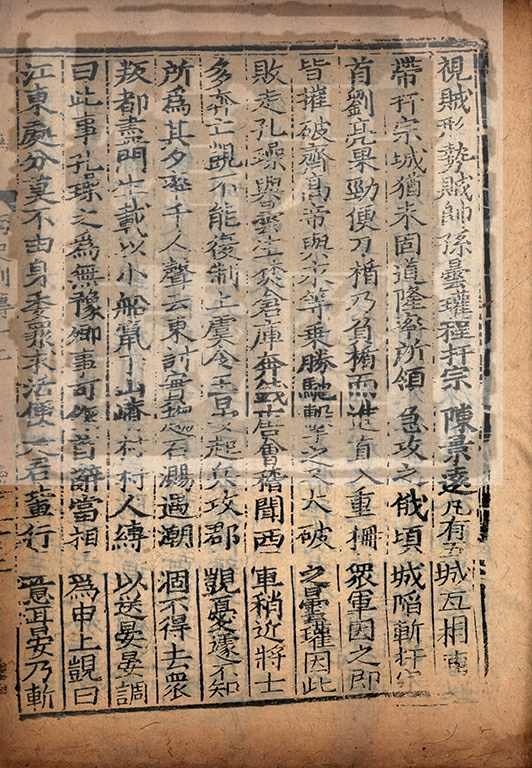 視賊形勢賊帥孫曇瓘程扞宗陳景遠凡有五城互相連
帶扞宗城猶未固道隆率所領急攻之俄頃城陷斬扞宗
首劉亮果勁便刀楯乃負楯而進直入重柵衆軍因之即
皆摧破齊高帝與永等乘勝馳擊之又大破之曇瓘因此
敗走孔璪與曇生焚倉庫奔錢唐會稽聞西軍稍近將士
多奔亡覬不能復制上虞令王晏起兵攻郡覬憂遽不知
所爲其夕率千人聲云東討實趨石瀃遇潮涸不得去衆
叛都盡門生載以小船竄于山嵴村村人縛以送晏晏調
曰此事孔璪之爲無豫卿事可作首辭當相爲申上覬曰
江東處分莫不由身委罪求活便是君輩行意耳晏乃斬